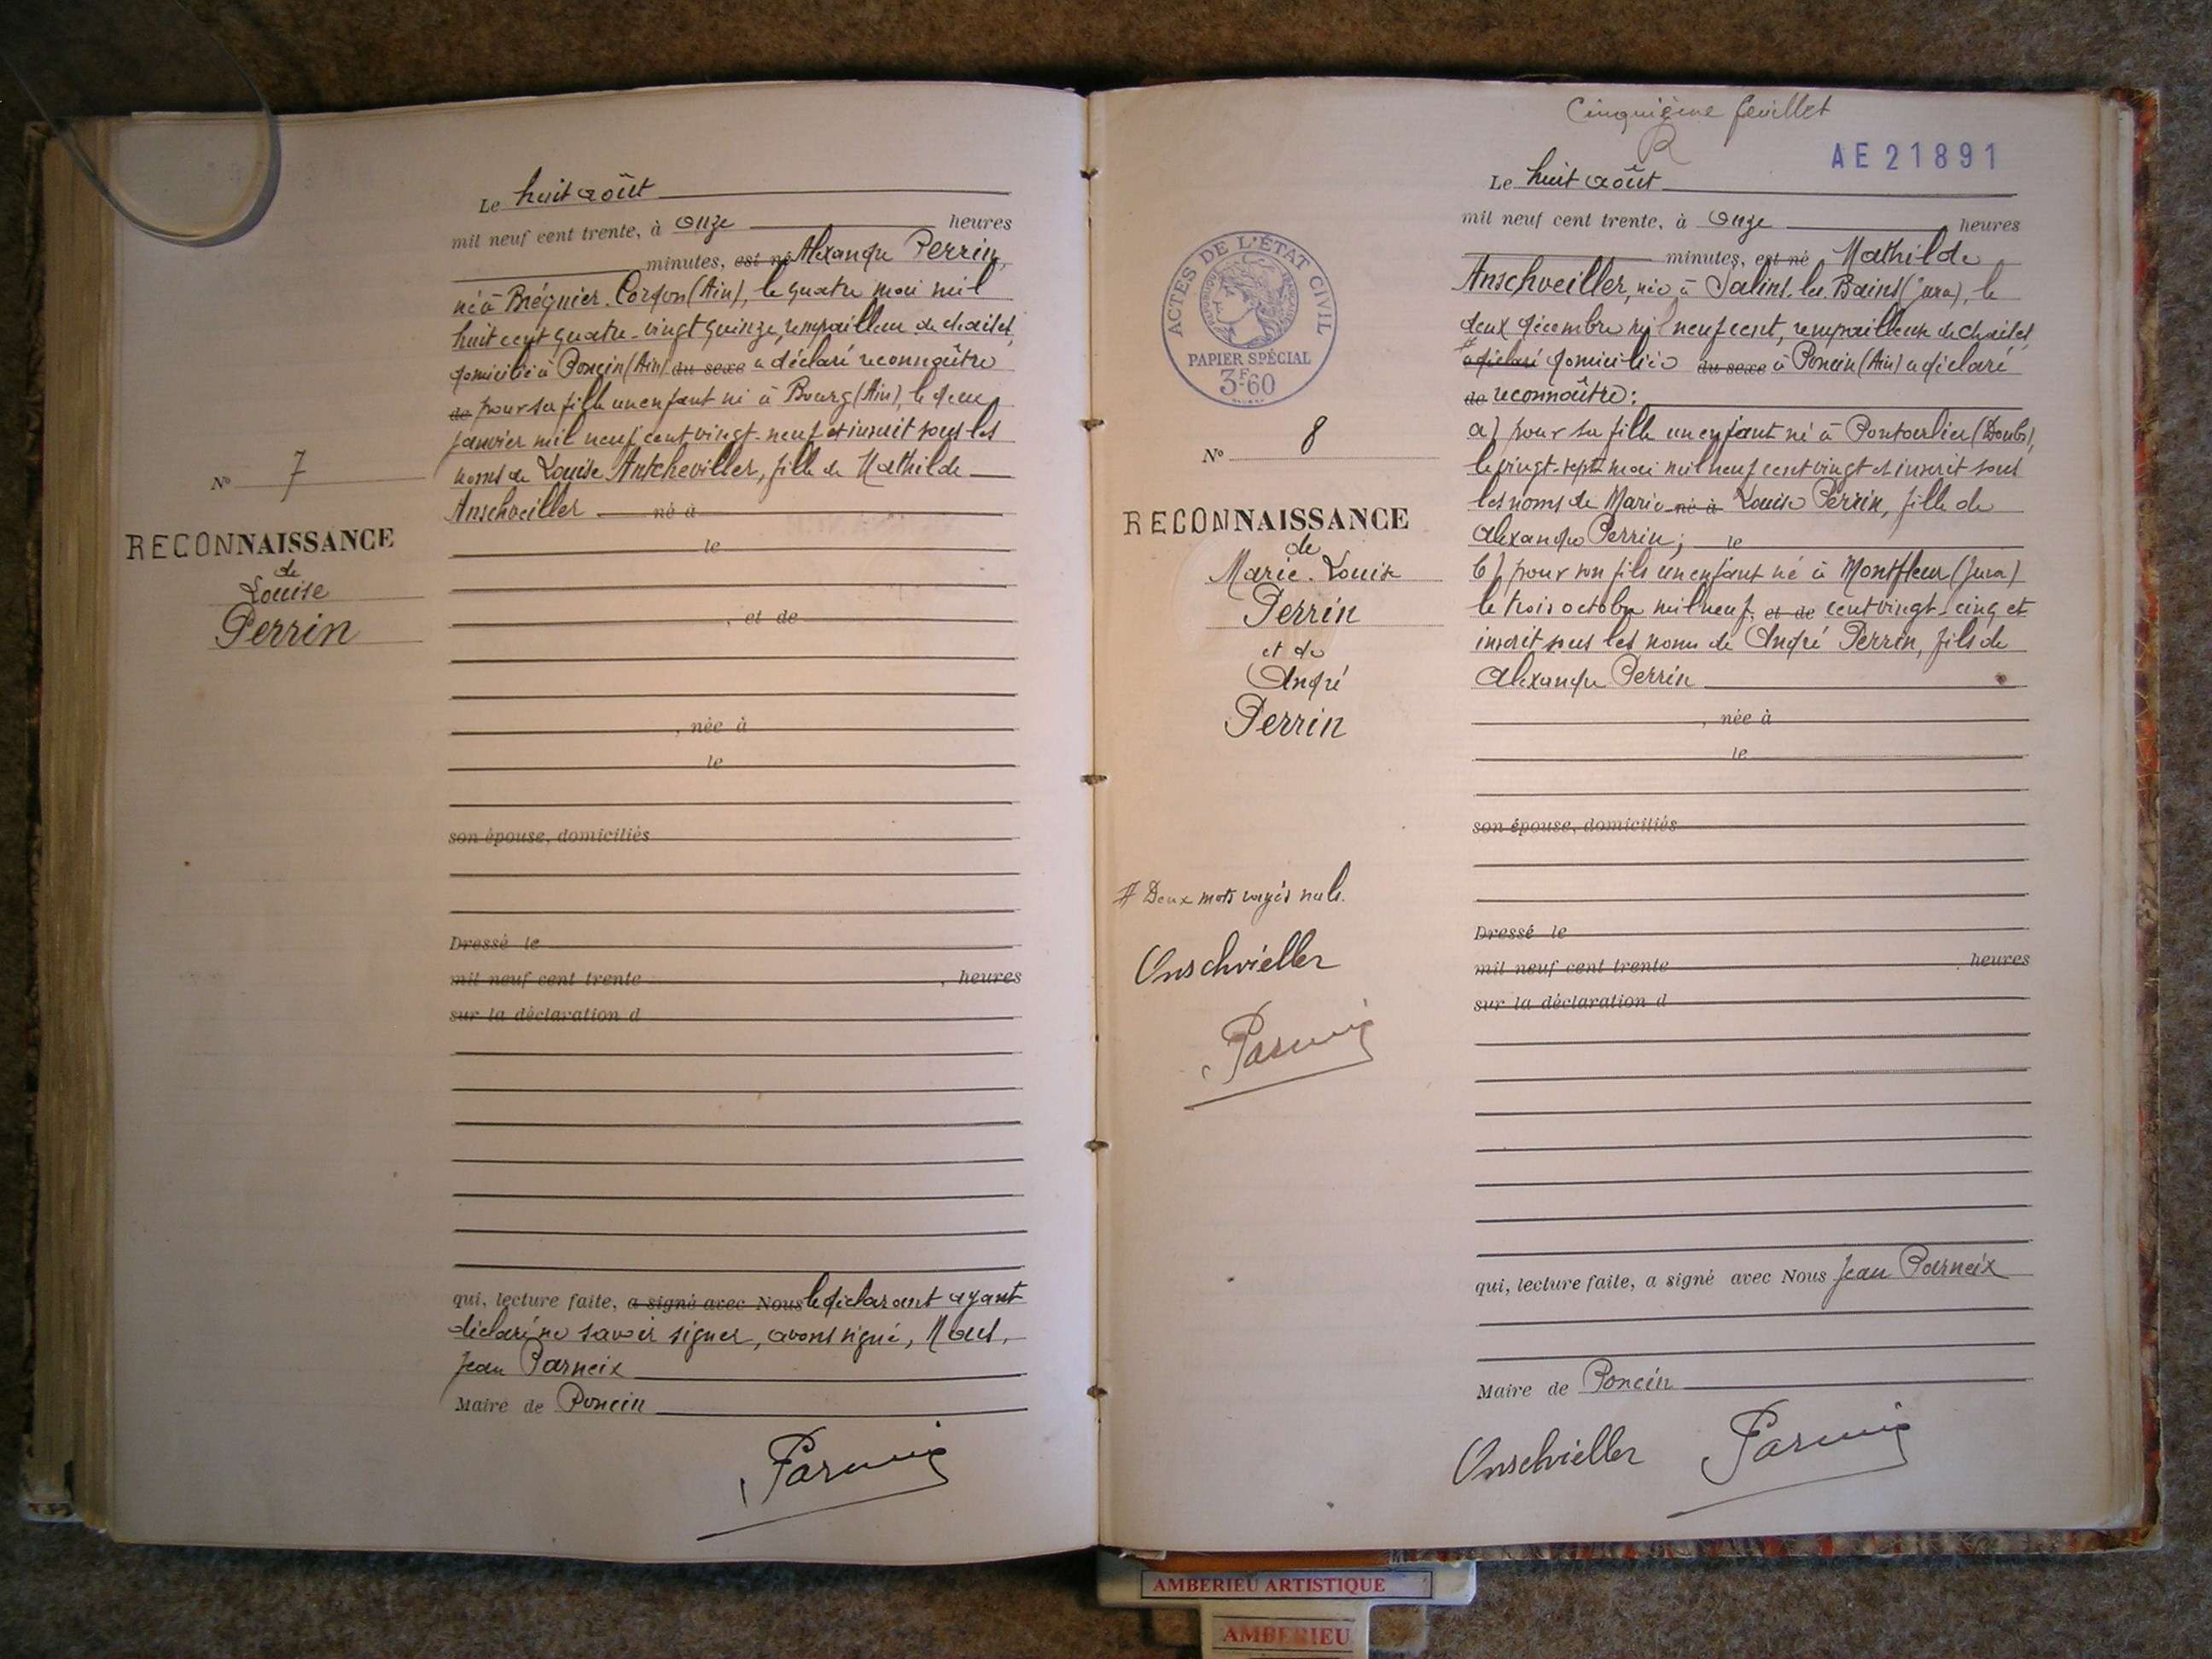 Le huit août
mil neuf cent trente, à onze heures
minutes, est né Alexandre Perrin,
né à Brégnier-Cordon (Ain), le quatre mai mil
huit cent quatre-vingt quinze, rempailleur de chaises,
domicilié à Poncin (Ain) du sexe a déclaré reconnaître
de pour sa fille un enfant né à Bourg (Ain), le deux
janvier mil neuf cent vingt-neuf et inscrit sous les
noms de Louise Antcheviller, fille de Mathilde
Anschveiller né à
le
, et de
, née à
le
son épouse, domiciliés
Dressé le
mil neuf cent trente , heures
sur la déclaration d
qui, lecture faite, a signé avec Nous le déclarant ayant
déclaré ne savoir signer, avons signé, Nous,
Jean Parneix
Maire de Poncin
Parneix
N° 7
RECONNAISSANCE
de
Louise
Perrin
Cinquième feuillet
AE 21891
Le huit août
mil neuf cent trente, à onze heures
minutes, est né Mathilde
Anschveiller, née à Salins-les-Bains (Jura), le
deux décembre mil neuf cent, rempailleuse de chaises,
# a déclaré domiciliée du sexe à Poncin (Ain) a déclaré
de reconnaître :
a) pour sa fille un enfant né à Pontarlier (Doubs),
le vingt-sept mai mil neuf cent vingt et inscrit sous
les noms de Marie né à Louise Perrin, fille de
Alexandre Perrin ; le
b) pour son fils un enfant né à Montfleur (Jura)
le trois octobre mil neuf et de cent vingt-cinq et
inscrit sous les noms de André Perrin, fils de
Alexandre Perrin
, née à
le
son épouse, domiciliés
Dressé le
mil neuf cent trente , heures
sur la déclaration d
qui, lecture faite, a signé avec Nous Jean Parneix
Maire de Poncin
Onschvieller Parneix
ACTES DE L'ÉTAT CIVIL
RÉPUBLIQUE FRANÇAISE
PAPIER SPÉCIAL
3F60
N° 8
RECONNAISSANCE
de
Marie-Louise
Perrin
et de
André
Perrin
# Deux mots rayés nuls.
Onschvieller
Parneix
AMBERIEU ARTISTIQUE
AMBERIEU